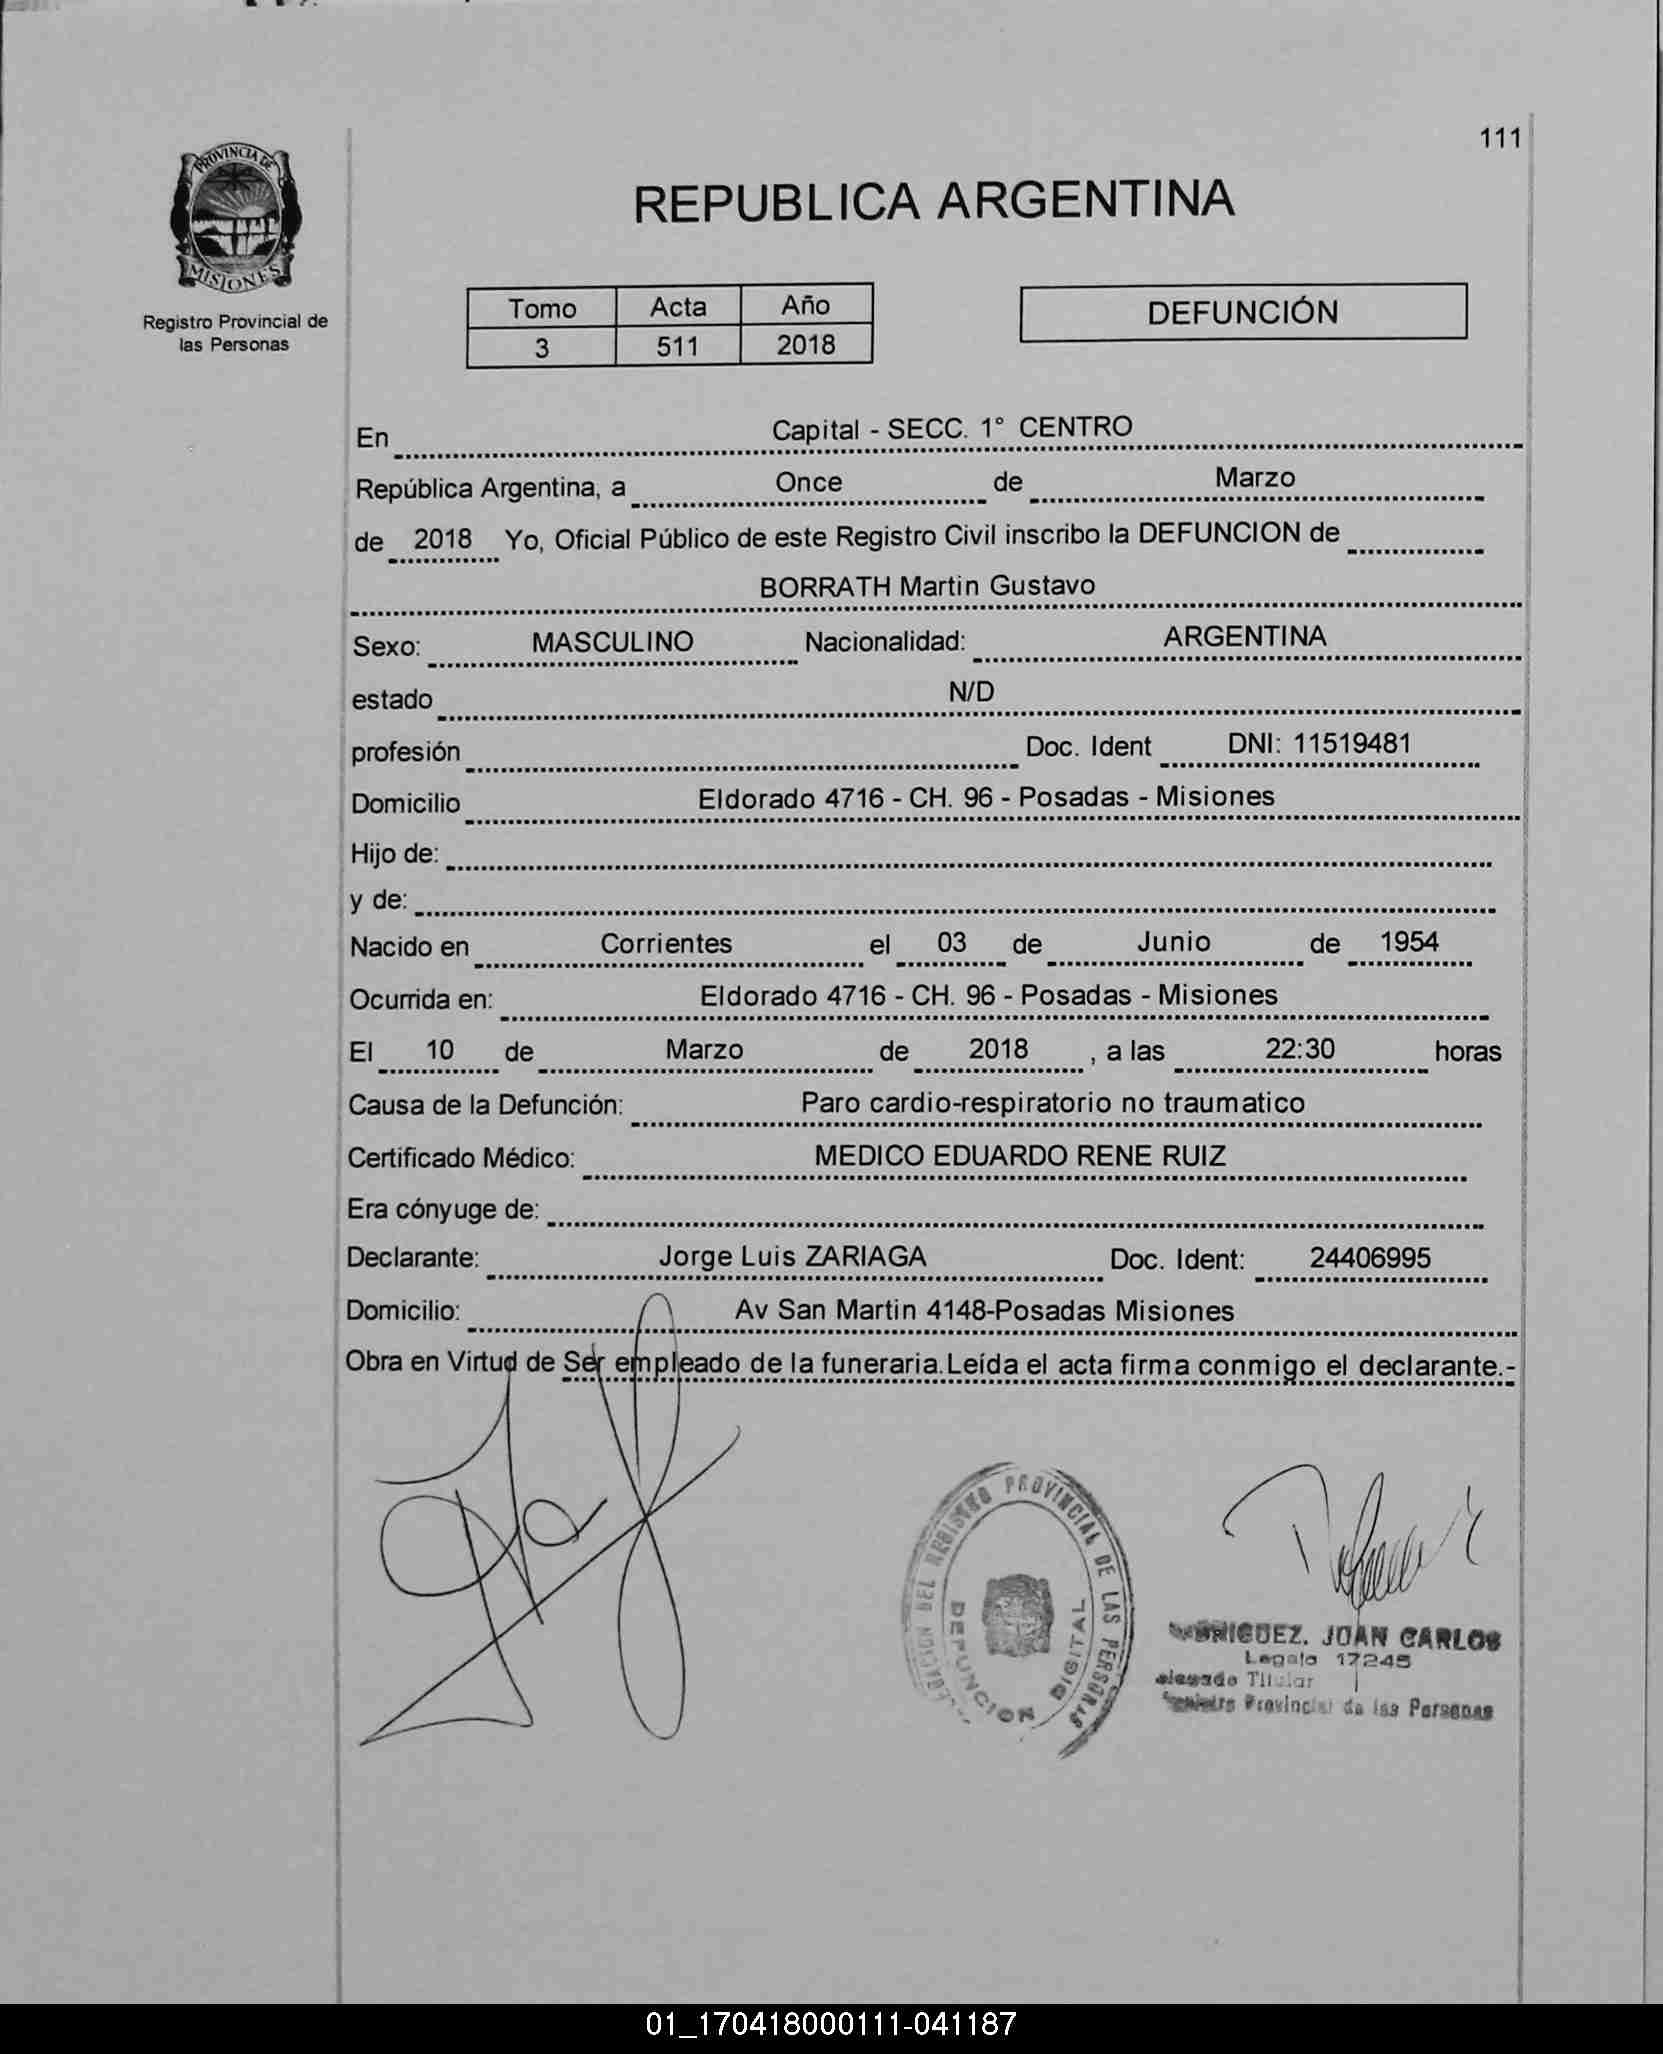 111
PROVINCIA DE
MISIONES
Registro Provincial de
las Personas
REPUBLICA ARGENTINA
Tomo Acta Año
3 511 2018
DEFUNCIÓN
En Capital - SECC. 1° CENTRO
República Argentina, a Once de Marzo
de 2018 Yo, Oficial Público de este Registro Civil inscribo la DEFUNCION de
BORRATH Martin Gustavo
Sexo: MASCULINO Nacionalidad: ARGENTINA
estado N/D
profesión Doc. Ident DNI: 11519481
Domicilio Eldorado 4716 - CH. 96 - Posadas - Misiones
Hijo de:
y de:
Nacido en Corrientes el 03 de Junio de 1954
Ocurrida en: Eldorado 4716 - CH. 96 - Posadas - Misiones
El 10 de Marzo de 2018 , a las 22:30 horas
Causa de la Defunción: Paro cardio-respiratorio no traumatico
Certificado Médico: MEDICO EDUARDO RENE RUIZ
Era cónyuge de:
Declarante: Jorge Luis ZARIAGA Doc. Ident: 24406995
Domicilio: Av San Martin 4148-Posadas Misiones
Obra en Virtud de Ser empleado de la funeraria.Leída el acta firma conmigo el declarante.-
DEL REGISTRO PROVINCIAL DE LAS PERSONAS
DEFUNCION DIGITAL
JUAN CARLOS
Legajo 17245
Titular
Provincial de las Personas
01_170418000111-041187